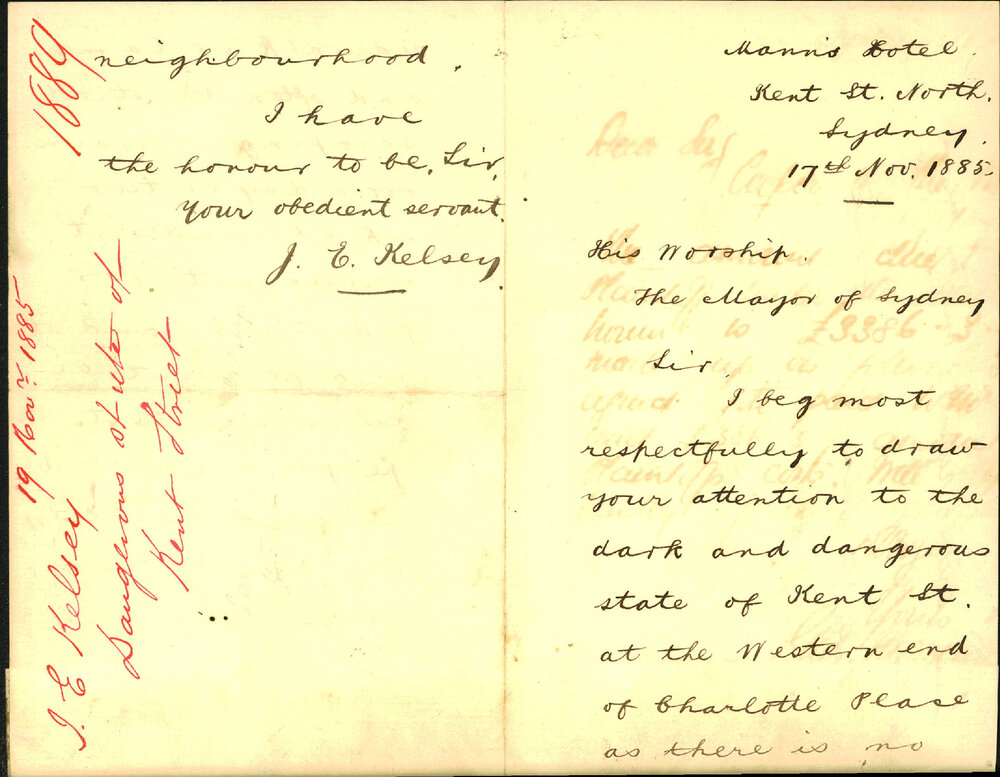 Mann's Hotel.
Kent St. North.
Sydney.
17th Nov. 1885.
His Worship.
The Mayor of Sydney
Sir,
I beg most
respectfully to draw
your attention to the
dark and dangerous
state of Kent St.
at the Western end
of Charlotte Place
as there is no
neighbourhood.
I have
the honour to be, Sir,
Your obedient servant.
J. E. Kelsey
1889
19 Novr 1885
J. E Kelsey
Dangerous state of
Kent Street
Dear Sir
£3386 3